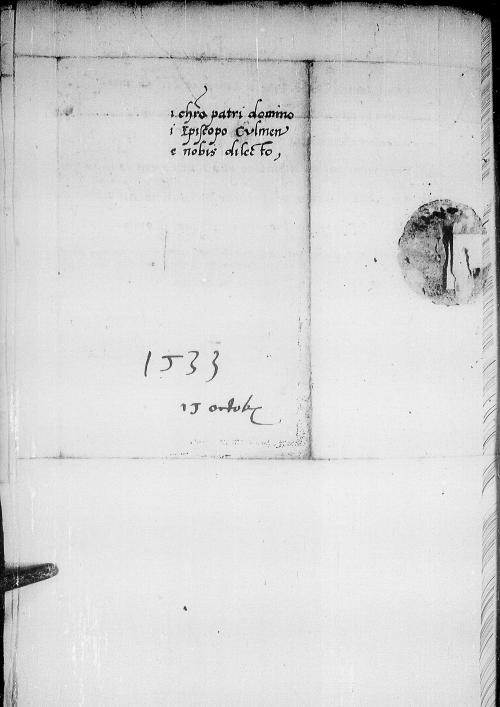 i. chro patri domino
i Episcopo Culmen
e nobis dilecto,
1533
15 octob